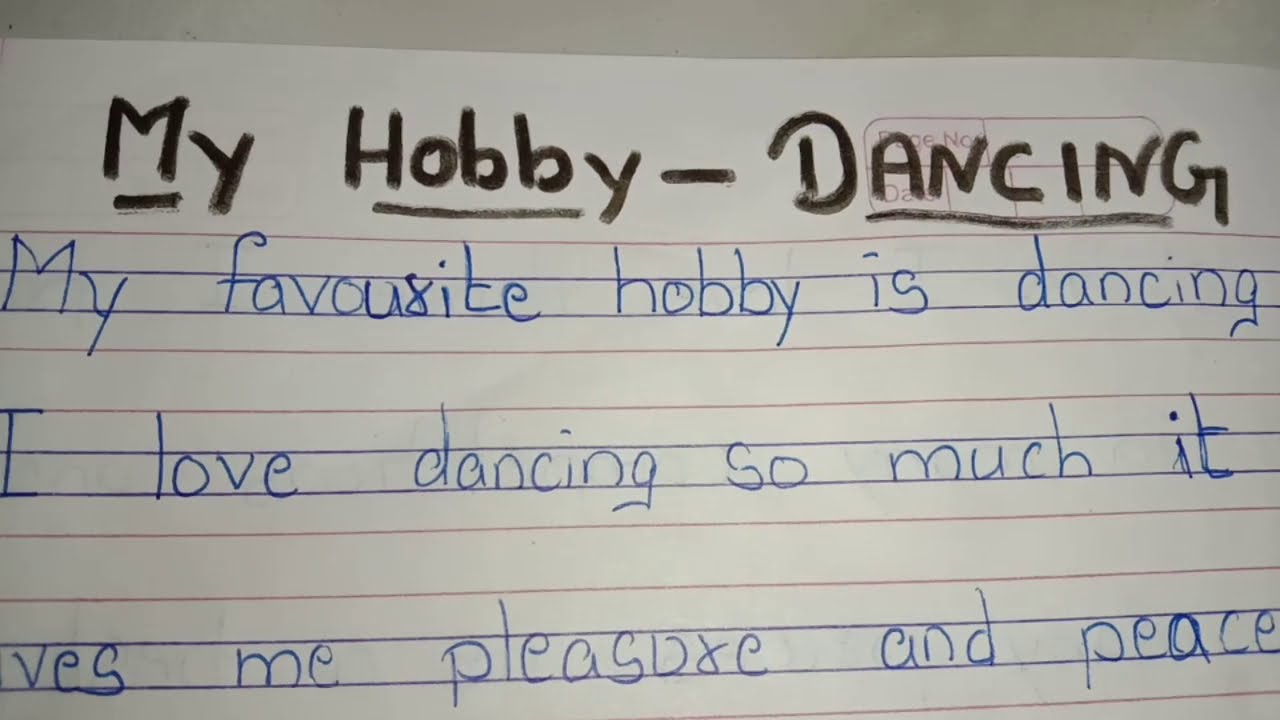 My Hobby - DANCING
Page No.
Date
My favourite hobby is dancing
I love dancing so much it
ves me pleasure and peace